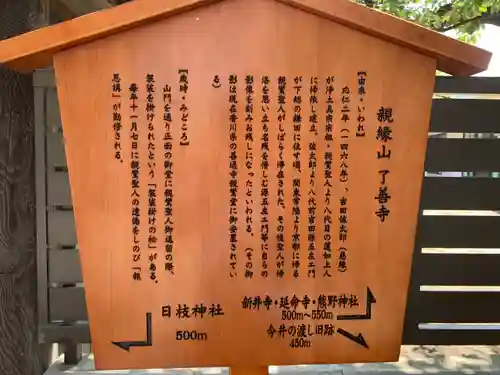 親縁山 了善寺
【由来・いわれ】
応仁二年(一四六八年)、吉田佐太郎(恳縁)
が浄土真宗宗祖・親鸞聖人より八代目の蓮如上人
に帰依し建立。佐太郎より八代前吉田源五左エ門
が下総の鎌田に住す頃、関東常陸より京都に帰る
親鸞聖人がしばらく滞在された。その後聖人が帰
洛を思い立ち名残を惜しむ源五左エ門等に自らの
影像を刻みお残しになったといわれる。(その御
影は現在香川県の善通寺親鸞堂に御安置されてい
る)
【歳時・みどころ】
山門を通り正面の御堂に親鸞聖人御逗留の際、
袈裟を掛けられたという「袈裟掛けの松」がある。
毎年十一月七日に親鸞聖人の遺徳をしのび「報
恩講」が勤修される。
日枝神社
500m
新井寺・延命寺・熊野神社
500m〜550m
今井の渡し旧跡
450m